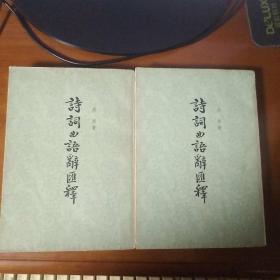 詩詞曲語辭匯釋
張相著
詩詞曲語辭匯釋
張相著
DELUX